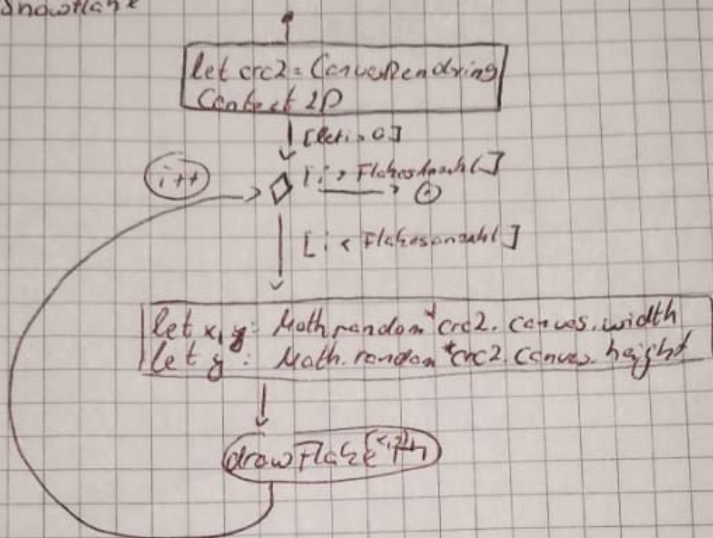 Snowflake
let crc2 = CanvesRendring
Context 2D
[let i = 0]
i++
[i > Flakesanzahl]
[i < Flakesanzahl]
let x, y : Math random * crc2. canves. width
let y : Math. random * crc2. canves. height
draw Flake